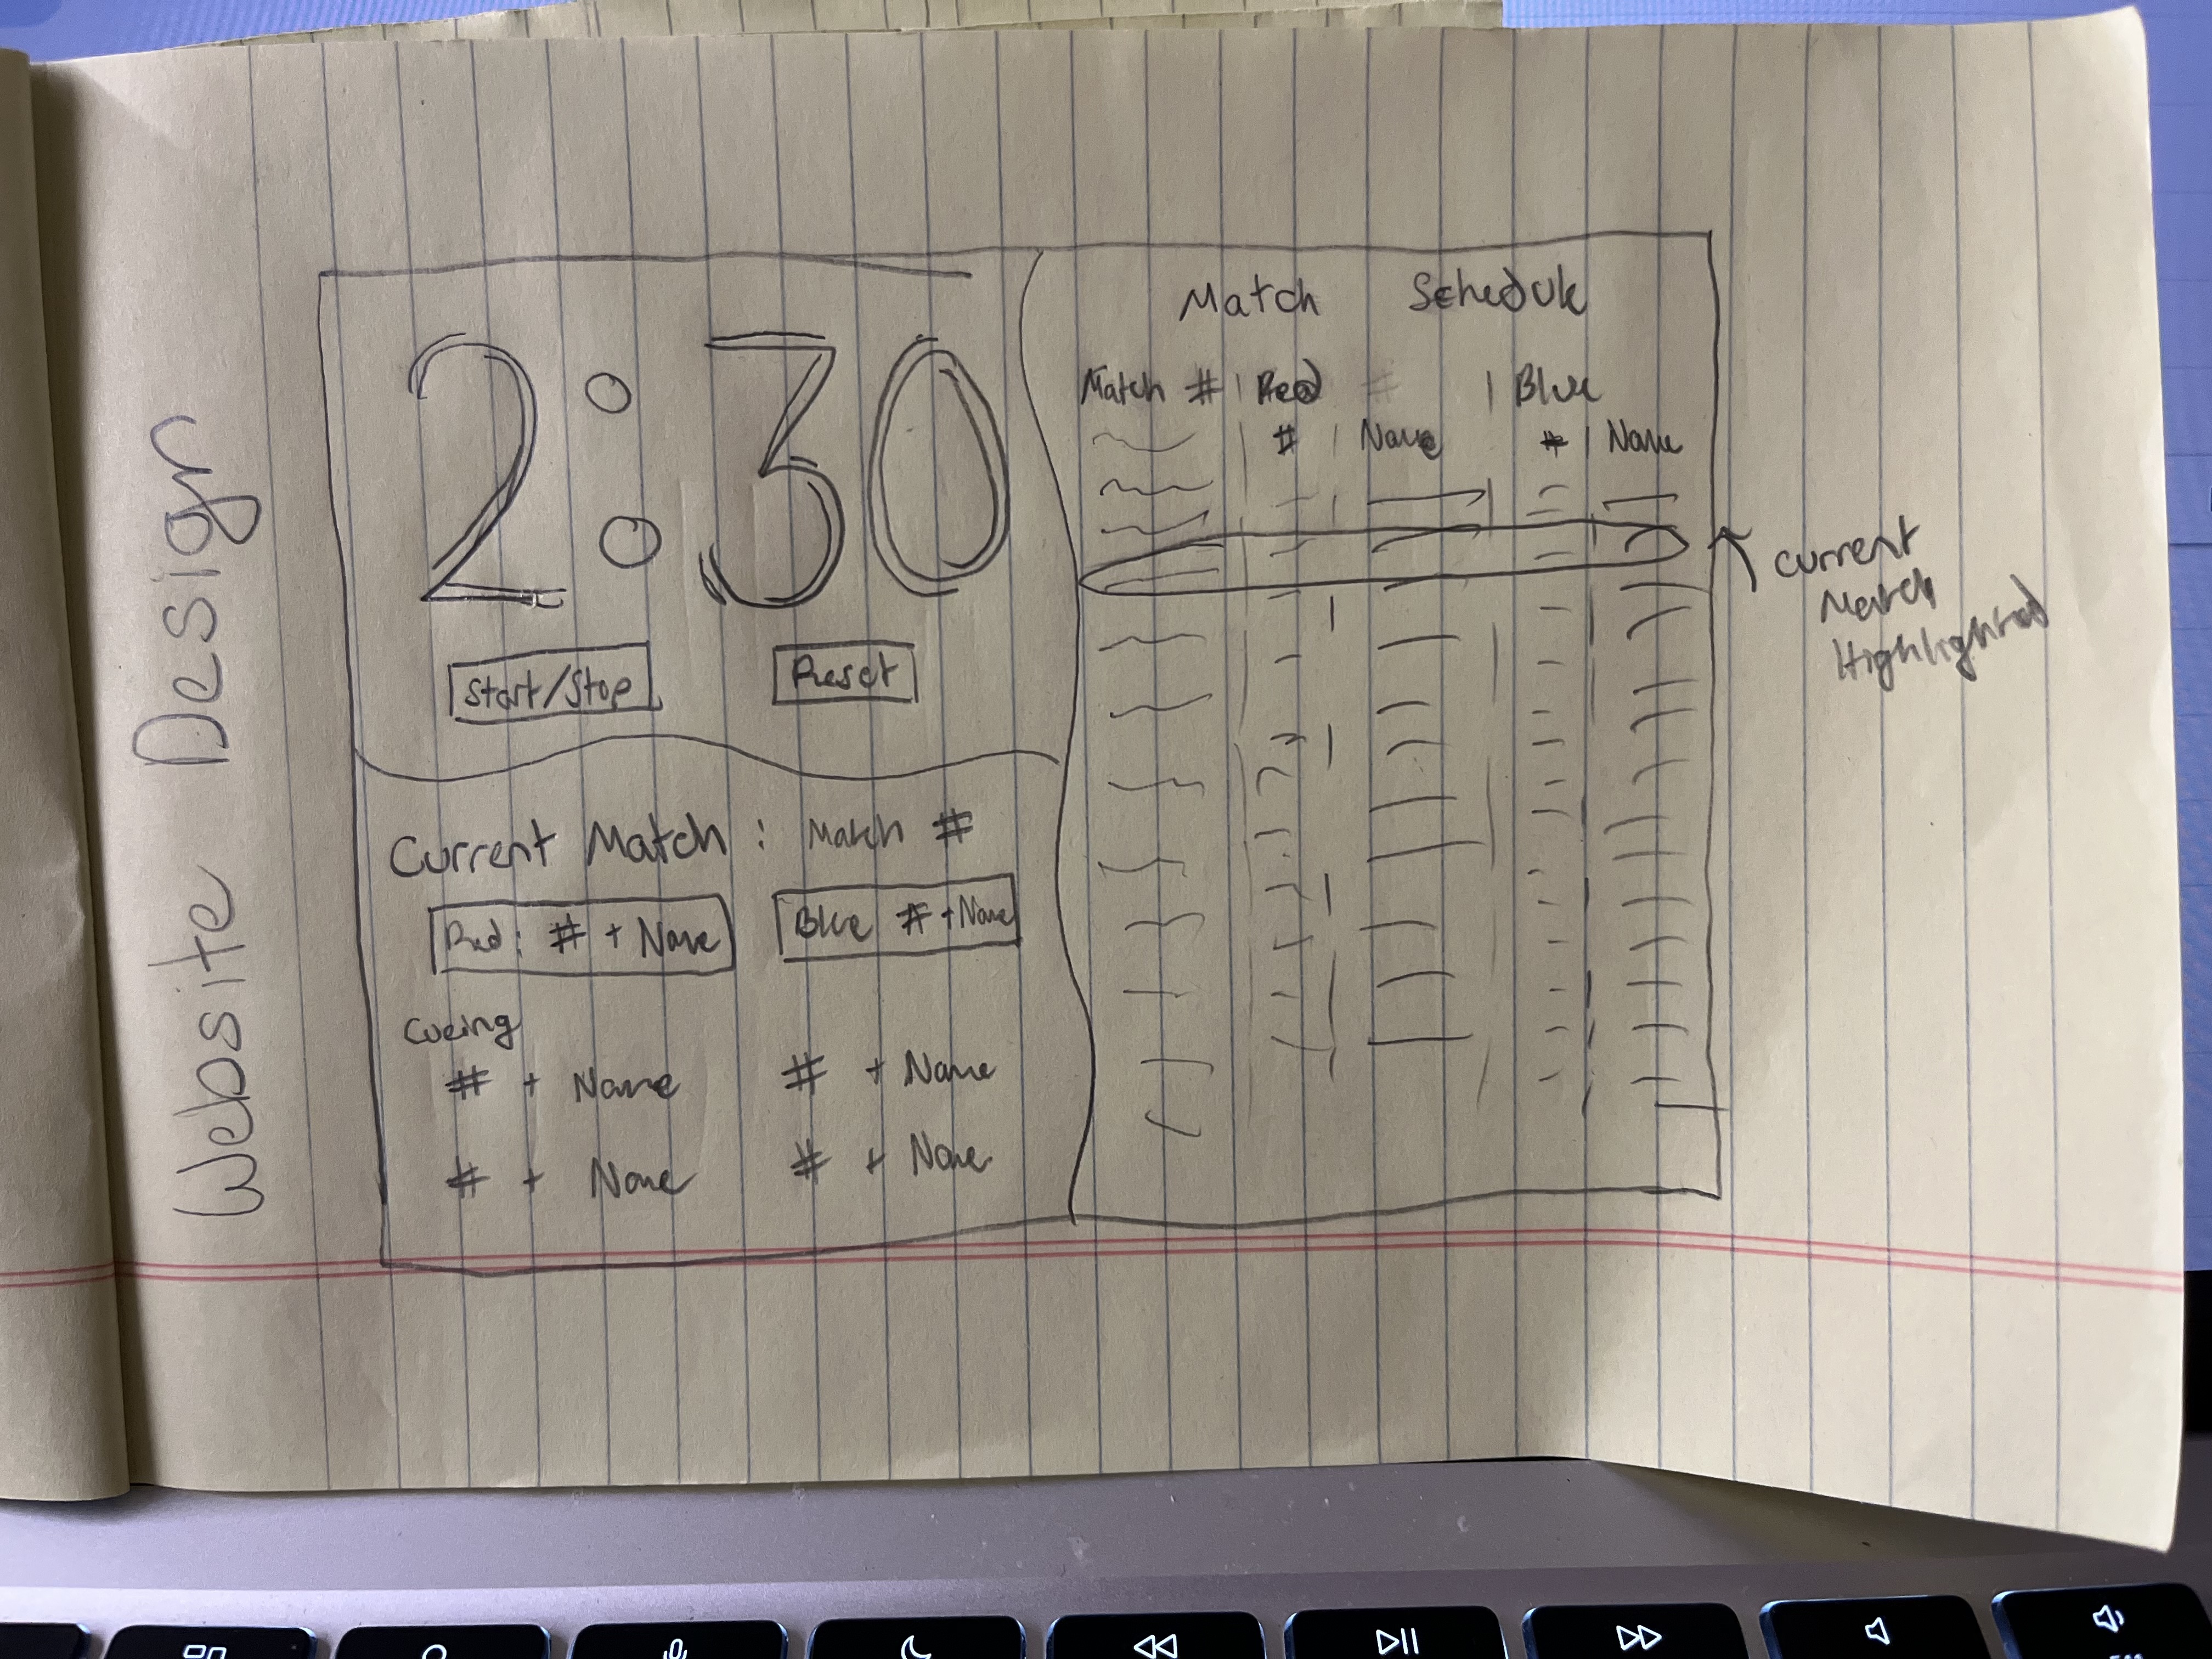 Website Design
2:30
Start/Stop
Reset
Current Match : Match #
Red: # + Name
Blue # + Name
Cueing
# + Name # + Name
# + Name # + Name
Match Schedule
Match # | Red # | Blue
# | Name # | Name
Current
Match
Highlighted